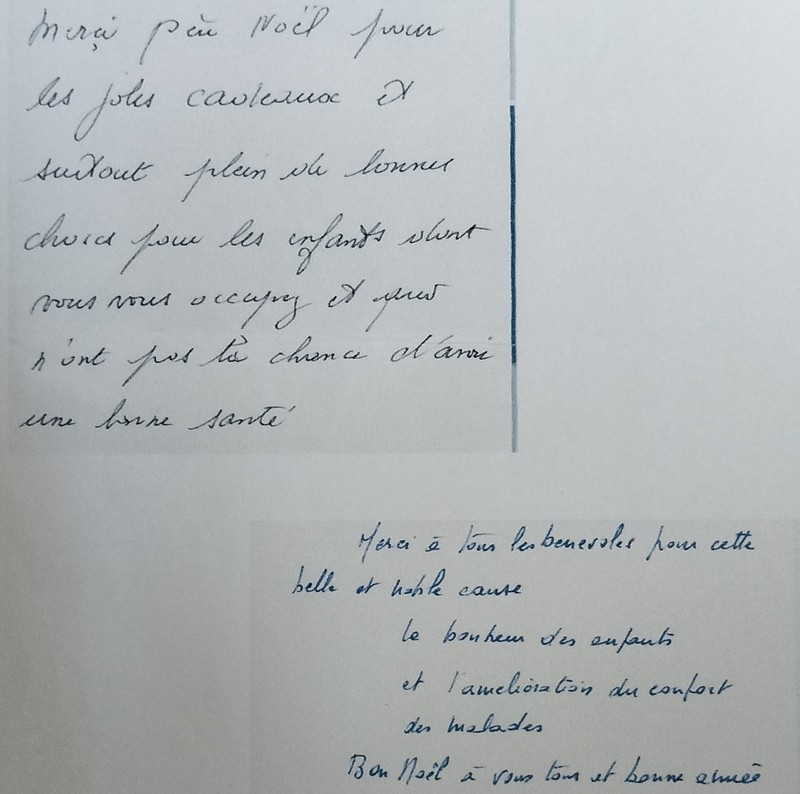 Merçi père Noël pour
les jolis cadeaux et
surtout plein de bonnes
choses pour les enfants dont
vous vous occupez et qui
n'ont pas la chance d'avoir
une bonne santé
Merci à tous les benevoles pour cette
belle et noble cause
le bonheur des enfants
et l'amelioration du confort
des malades
Bon Noël à vous tous et bonne année